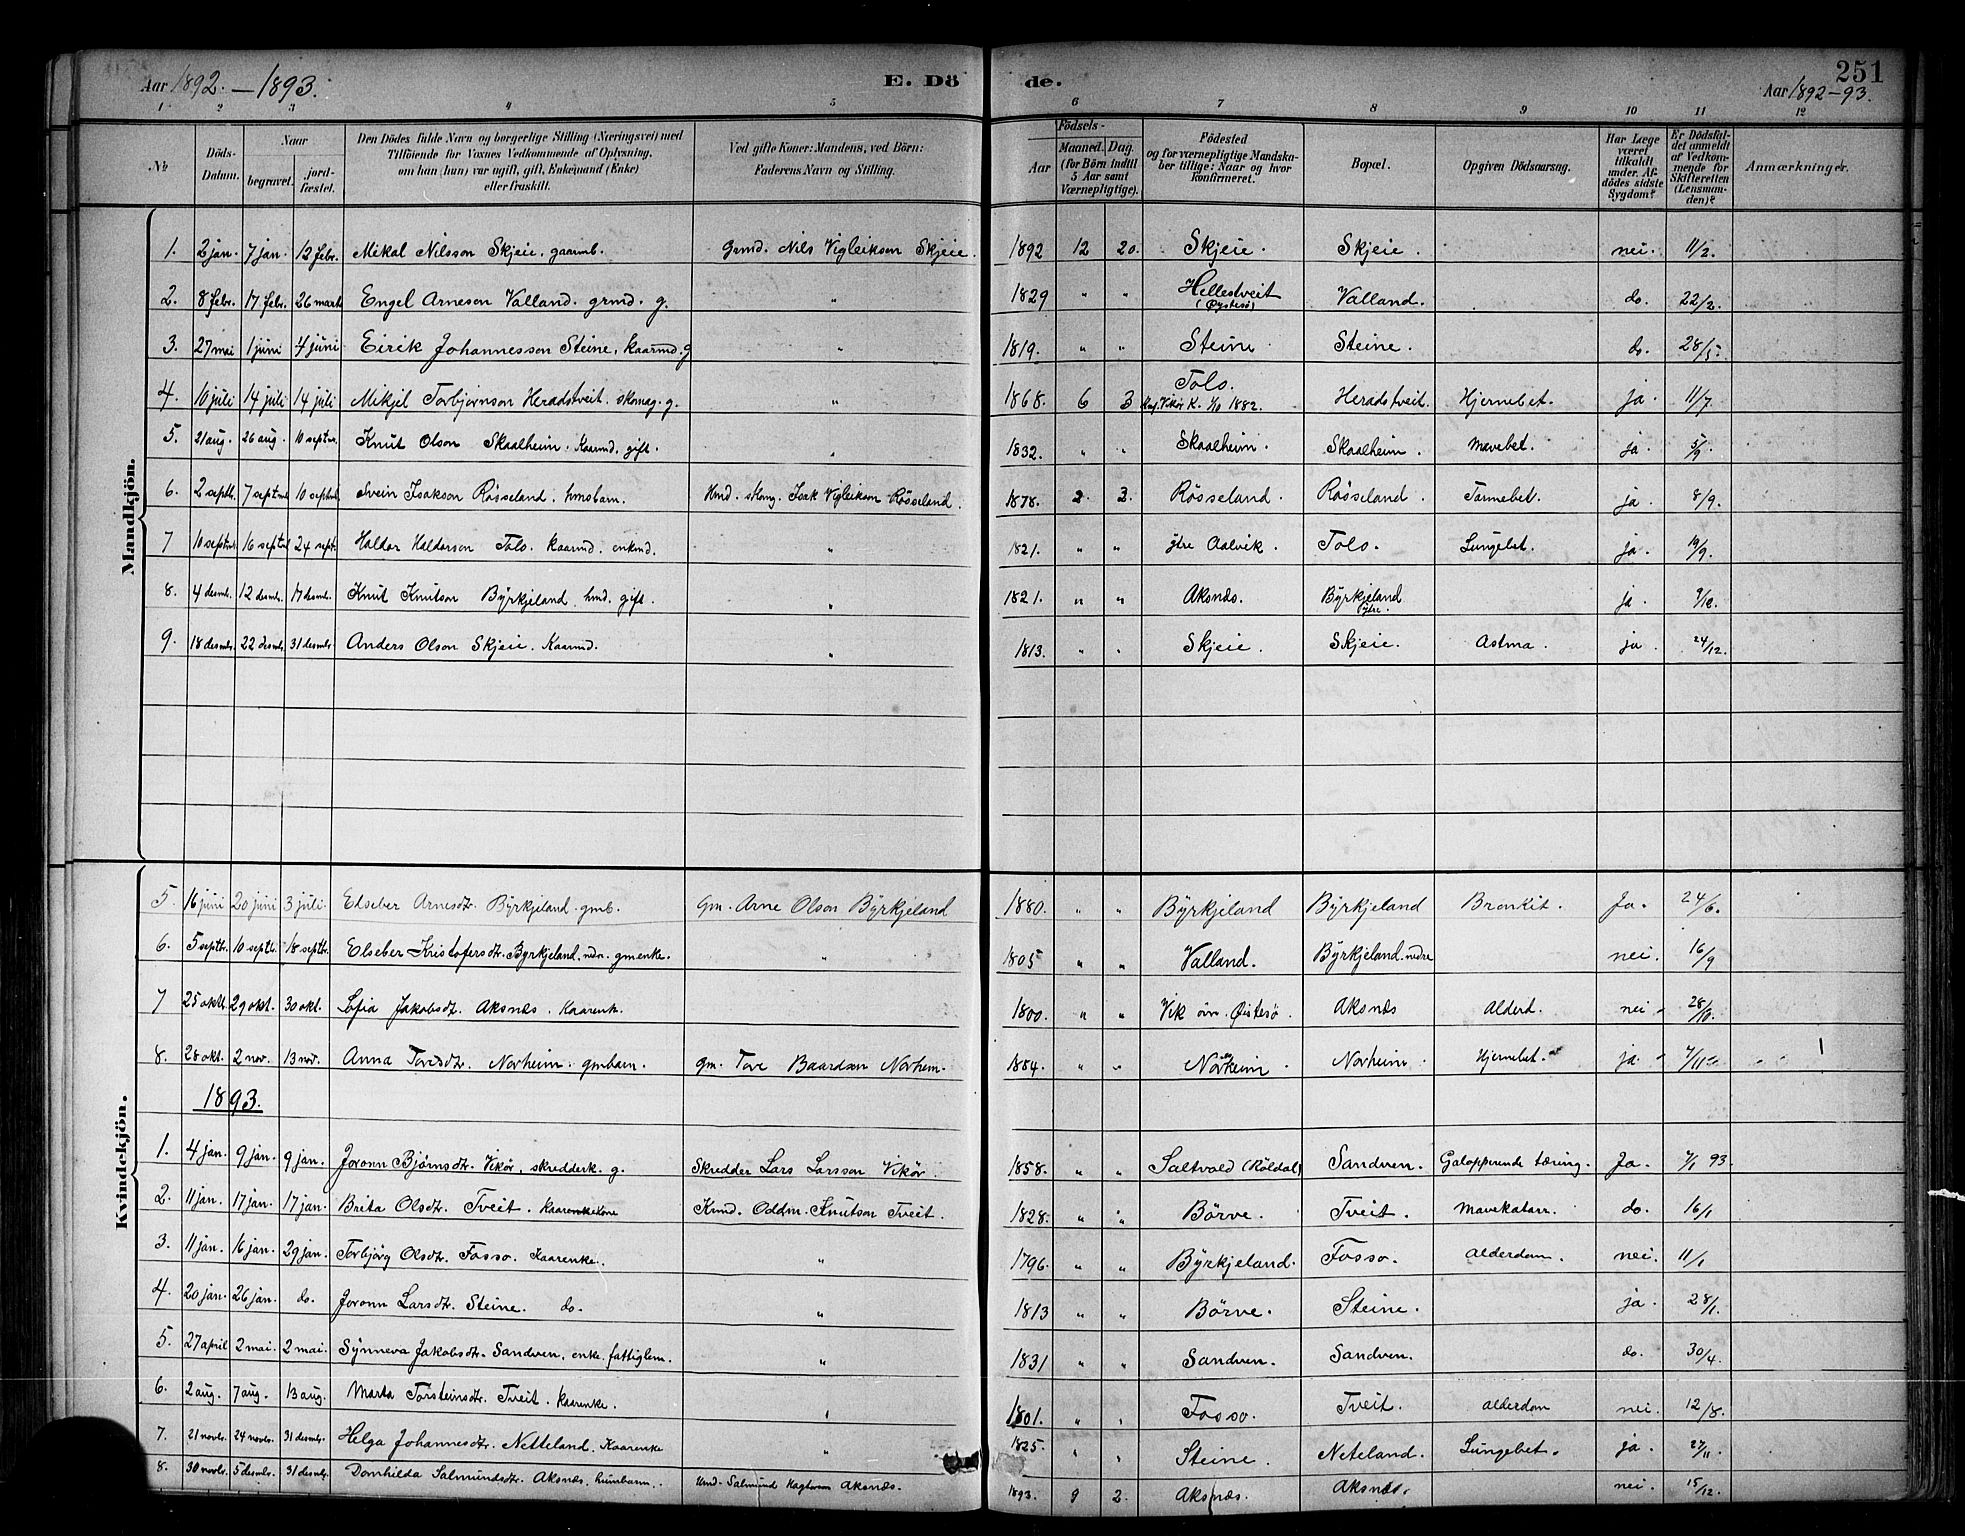 Aar 1892. – 1893. E. Döde. 251
Aar 1892–93.
1 2 3 4 5 6 7 8 9 10 11 12
No
Döds-Datum.
Naar begravet. jordfæstet.
Den Dödes fulde Navn og borgerlige Stilling (Næringsvei) med Tilföiende for Voxnes Vedkommende af Oplysning, om han (hun) var ugift, gift, Enkemand (Enke) eller fraskilt.
Ved gifte Koner: Mandens, ved Börn: Faderens Navn og Stilling.
Födsels-
Aar Maaned. Dag. (for Börn indtil 5 Aar samt Værnepligtige).
Födested og for værnepligtige Mandskaber tillige: Naar og hvor konfirmeret.
Bopæl.
Opgiven Dödsaarsag.
Har Læge været tilkaldt under Afdödes sidste Sygdom?
Er Dödsfaldet anmeldt af Vedkommende for Skifteretten (Lensmanden)?
Anmærkninger.
Mandkjön.
1. 2 jan. 7 jan. 12 febr. Mikal Nilsson Skjeie, gaarmb. Grmd. Nils Vigleikson Skjeie. 1892 12 20. Skjeie. Skjeie. nei. 11/2.
2. 8 febr. 17 febr. 26 marts Engel Arneson Valland. grmd. g. " 1829 " " Hellestveit (Øystesø) Valland. do. 22/2.
3. 27 mai 1 juni 4 juni Eirik Johannesson Steine, kaarmd. g " 1819. " " Steine Steine. do. 28/5.
4. 10 juli 14 juli 14 juli Mikjel Torbjornson Heradstveit. skomag. g. " 1868. 6 3 Tolo. Vikør K. 1/10 1882. Heradstveit. Hjernebet. ja. 11/7
5. 21 aug. 26 aug. 10 septbr. Knut Olson Skaalheim. Kaarmd. gift. " 1832. " " Skaalheim. Skaalheim. Mavebet. ja. 5/9
6. 2 septb. 7 septmb 10 septmb. Svein Isakson Røsseland. hmsbarn. Hmd. skomg. Isak Vigleikson Røsseland. 1878. 2. 3. Røsseland. Røsseland. Tarmebet. ja. 8/9.
7 10 septmb. 16 septmb 24 sept. Haldor Haldorson Tolo. kaarmd. enkmd. " 1821. " " ytre Aalvik. Tolo. Lungebet. ja. 19/9.
8. 4 desmb. 12 desmb. 17 desmb. Knut Knutson Byrkjeland. hmd. gift. " 1821. " " Aksnes. Byrkjeland ytre. ja. 9/12.
9. 18 desmb. 22 desmb. 31 desmb. Anders Olson Skjeie. Kaarmd. " 1813. " " Skjeie. Skjeie. Astma. ja. 24/12.
Kvindekjön.
5. 16 juni 20 juni 3 juli. Elseber Arnesdtr. Byrkjeland. gmb. Gm. Arne Olson Byrkjeland 1880. " " Byrkjeland Byrkjeland Bronkit. Ja. 24/6.
6. 5 septbr. 10 septb. 18 septbr. Elseber Kristofersdtr. Byrkjeland. ndr. gmenke. " 1805 " " Valland. Byrkjeland. nedre nei. 16/9
7 25 oktb. 29 okt. 30 okt. Sofia Jakobsdtr. Aksnæs. Kaarenk. " 1800. " " Vik øvr. Øistesø. Aksnæs Alderd. nei. 28/10.
8. 28 okt. 2 nov. 13 nov. Anna Toresdtr. Norheim. gmbarn. Gm. Tore Baardson Norheim. 1884. " " Norheim Norheim. Hjernebet. ja. 7/11
1893.
1. 4 jan. 9 jan. 9 jan. Joronn Bjørnsdtr. Vikør, skredderk. g. Skredder Lars Larsson Vikør. 1858. " " Saltvold (Røldal) Sandven. Galopperende tæring. Ja. 7/1 93.
2. 11 jan. 17 jan. 17 jan. Brita Olsdtr. Tveit. Kaarenkekone Kmd. Oddm. Knutson Tveit. 1828. " " Børve. Tveit. Mavekatarr. do. 16/1
3. 11 jan. 16 jan. 29 jan. Torbjørg Olsdtr. Fosso. Kaarenke. " 1796. " " Byrkjeland. Fosso. Alderdom. nei. 11/1
4. 20 jan. 26 jan. do. Joronn Larsdtr. Steine. do. " 1813 " " Børve. Steine. ja. 28/1.
5. 27 april 2 mai. 2 mai. Synneva Jakobsdtr. Sandven. enke. fattiglem. " 1831 " " Sandven. Sandven. do. 30/4.
6. 2 aug. 7 aug. 13 aug. Marta Torsteinsdtr. Tveit. Kaarenke. " 1801. " " Fosso. Tveit. Alderdom nei. 12/8.
7. 21 novbr. 24 novbr. 31 desmb. Helga Johannesdtr. Netteland. Kaarenke " 1825. " " Steine. Neteland. Lungebet. ja. 27/11
8. 30 novbr. 5 desmbr. 31 desmb. Domhilda Salmundsdtr. Aksnæs. husmbarn. Hmd. Salmund Aksnæs. 1893. 9 2. Aksnæs. Aksnæs. nei. 15/12.